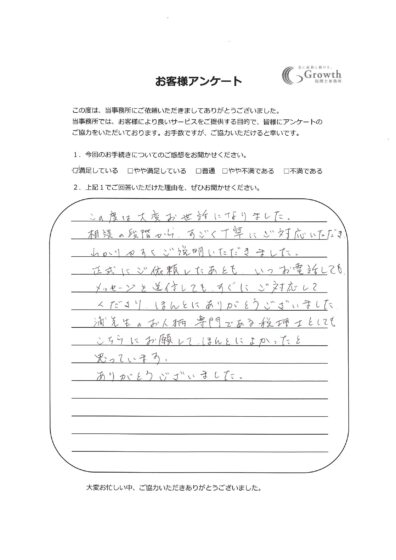 共に成長し続ける
Growth
税理士事務所
お客様アンケート
この度は、当事務所にご依頼いただきましてありがとうございました。
当事務所では、お客様により良いサービスをご提供する目的で、皆様にアンケートの
ご協力をいただいております。お手数ですが、ご協力いただけると幸いです。
１．今回のお手続きについてのご感想をお聞かせください。
☑満足している □やや満足している □普通 □やや不満である □不満である
２．上記１でご回答いただけた理由を、ぜひお聞かせください。
この度は大変お世話になりました。
相談の段階から、すごく丁寧にご対応いただき
わかりやすくご説明いただきました。
正式にご依頼したあとも、いつお電話しても
メッセージを送付しても、すぐにご対応して
くださり ほんとにありがとうございました
浦先生のお人柄 専門である税理士としても
こちらにお願して ほんとによかったと
思っています。
ありがとうございました。
大変お忙しい中、ご協力いただきありがとうございました。